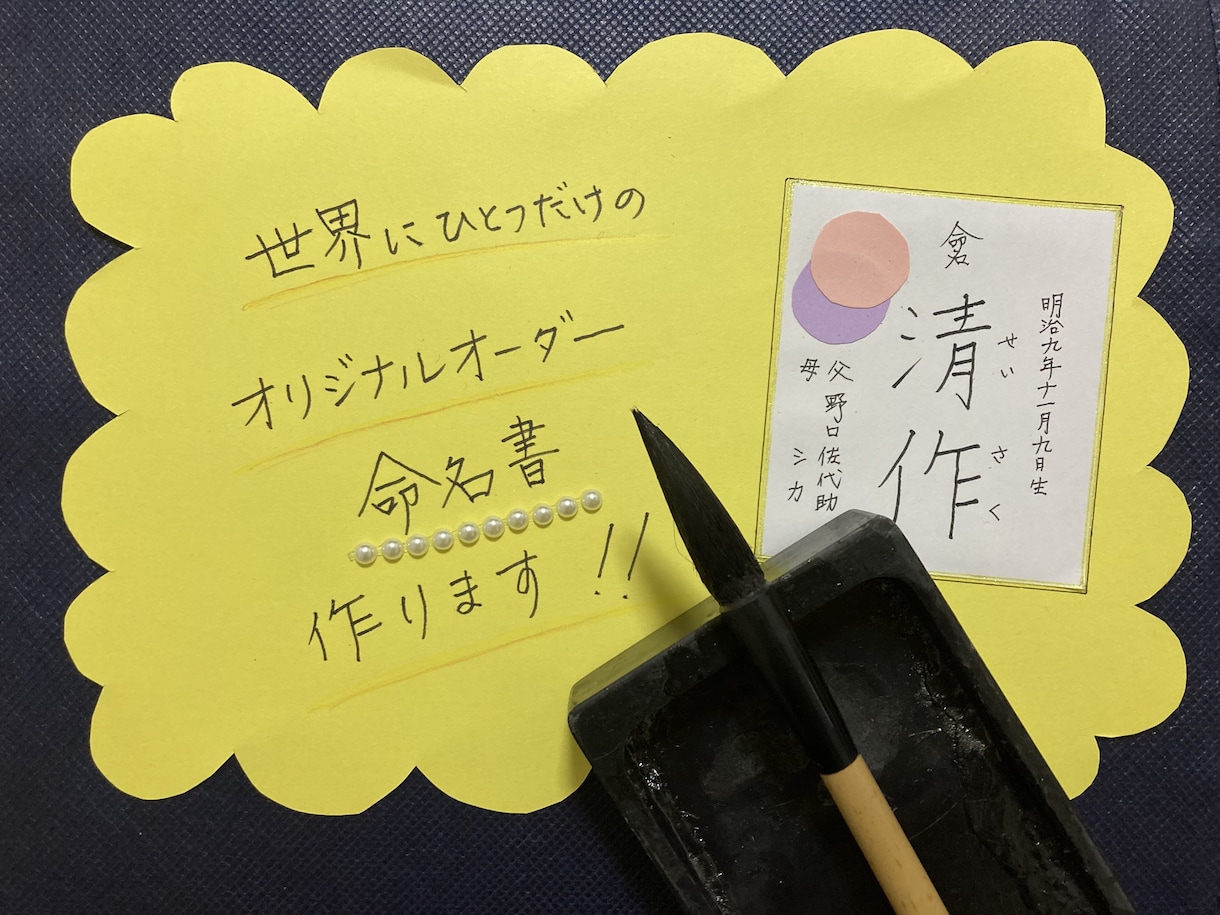 世界にひとつだけの
オリジナルオーダー
命名書
作ります!!
明治九年十一月九日生
せいさく
清作
父 野口佐代助
母 シカ